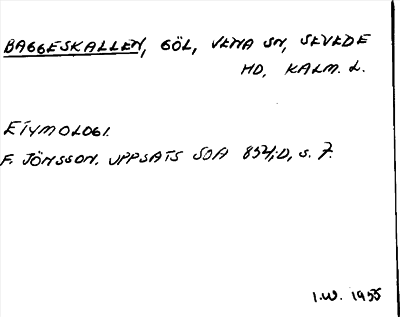 BAGGESKALLEN, GÖL, VENA SN, SEVEDE
HD, KALM. L.
ETYMOLOGI.
F. JÖNSSON. UPPSATS SOA 854:D, S. 7.
I.W. 1955